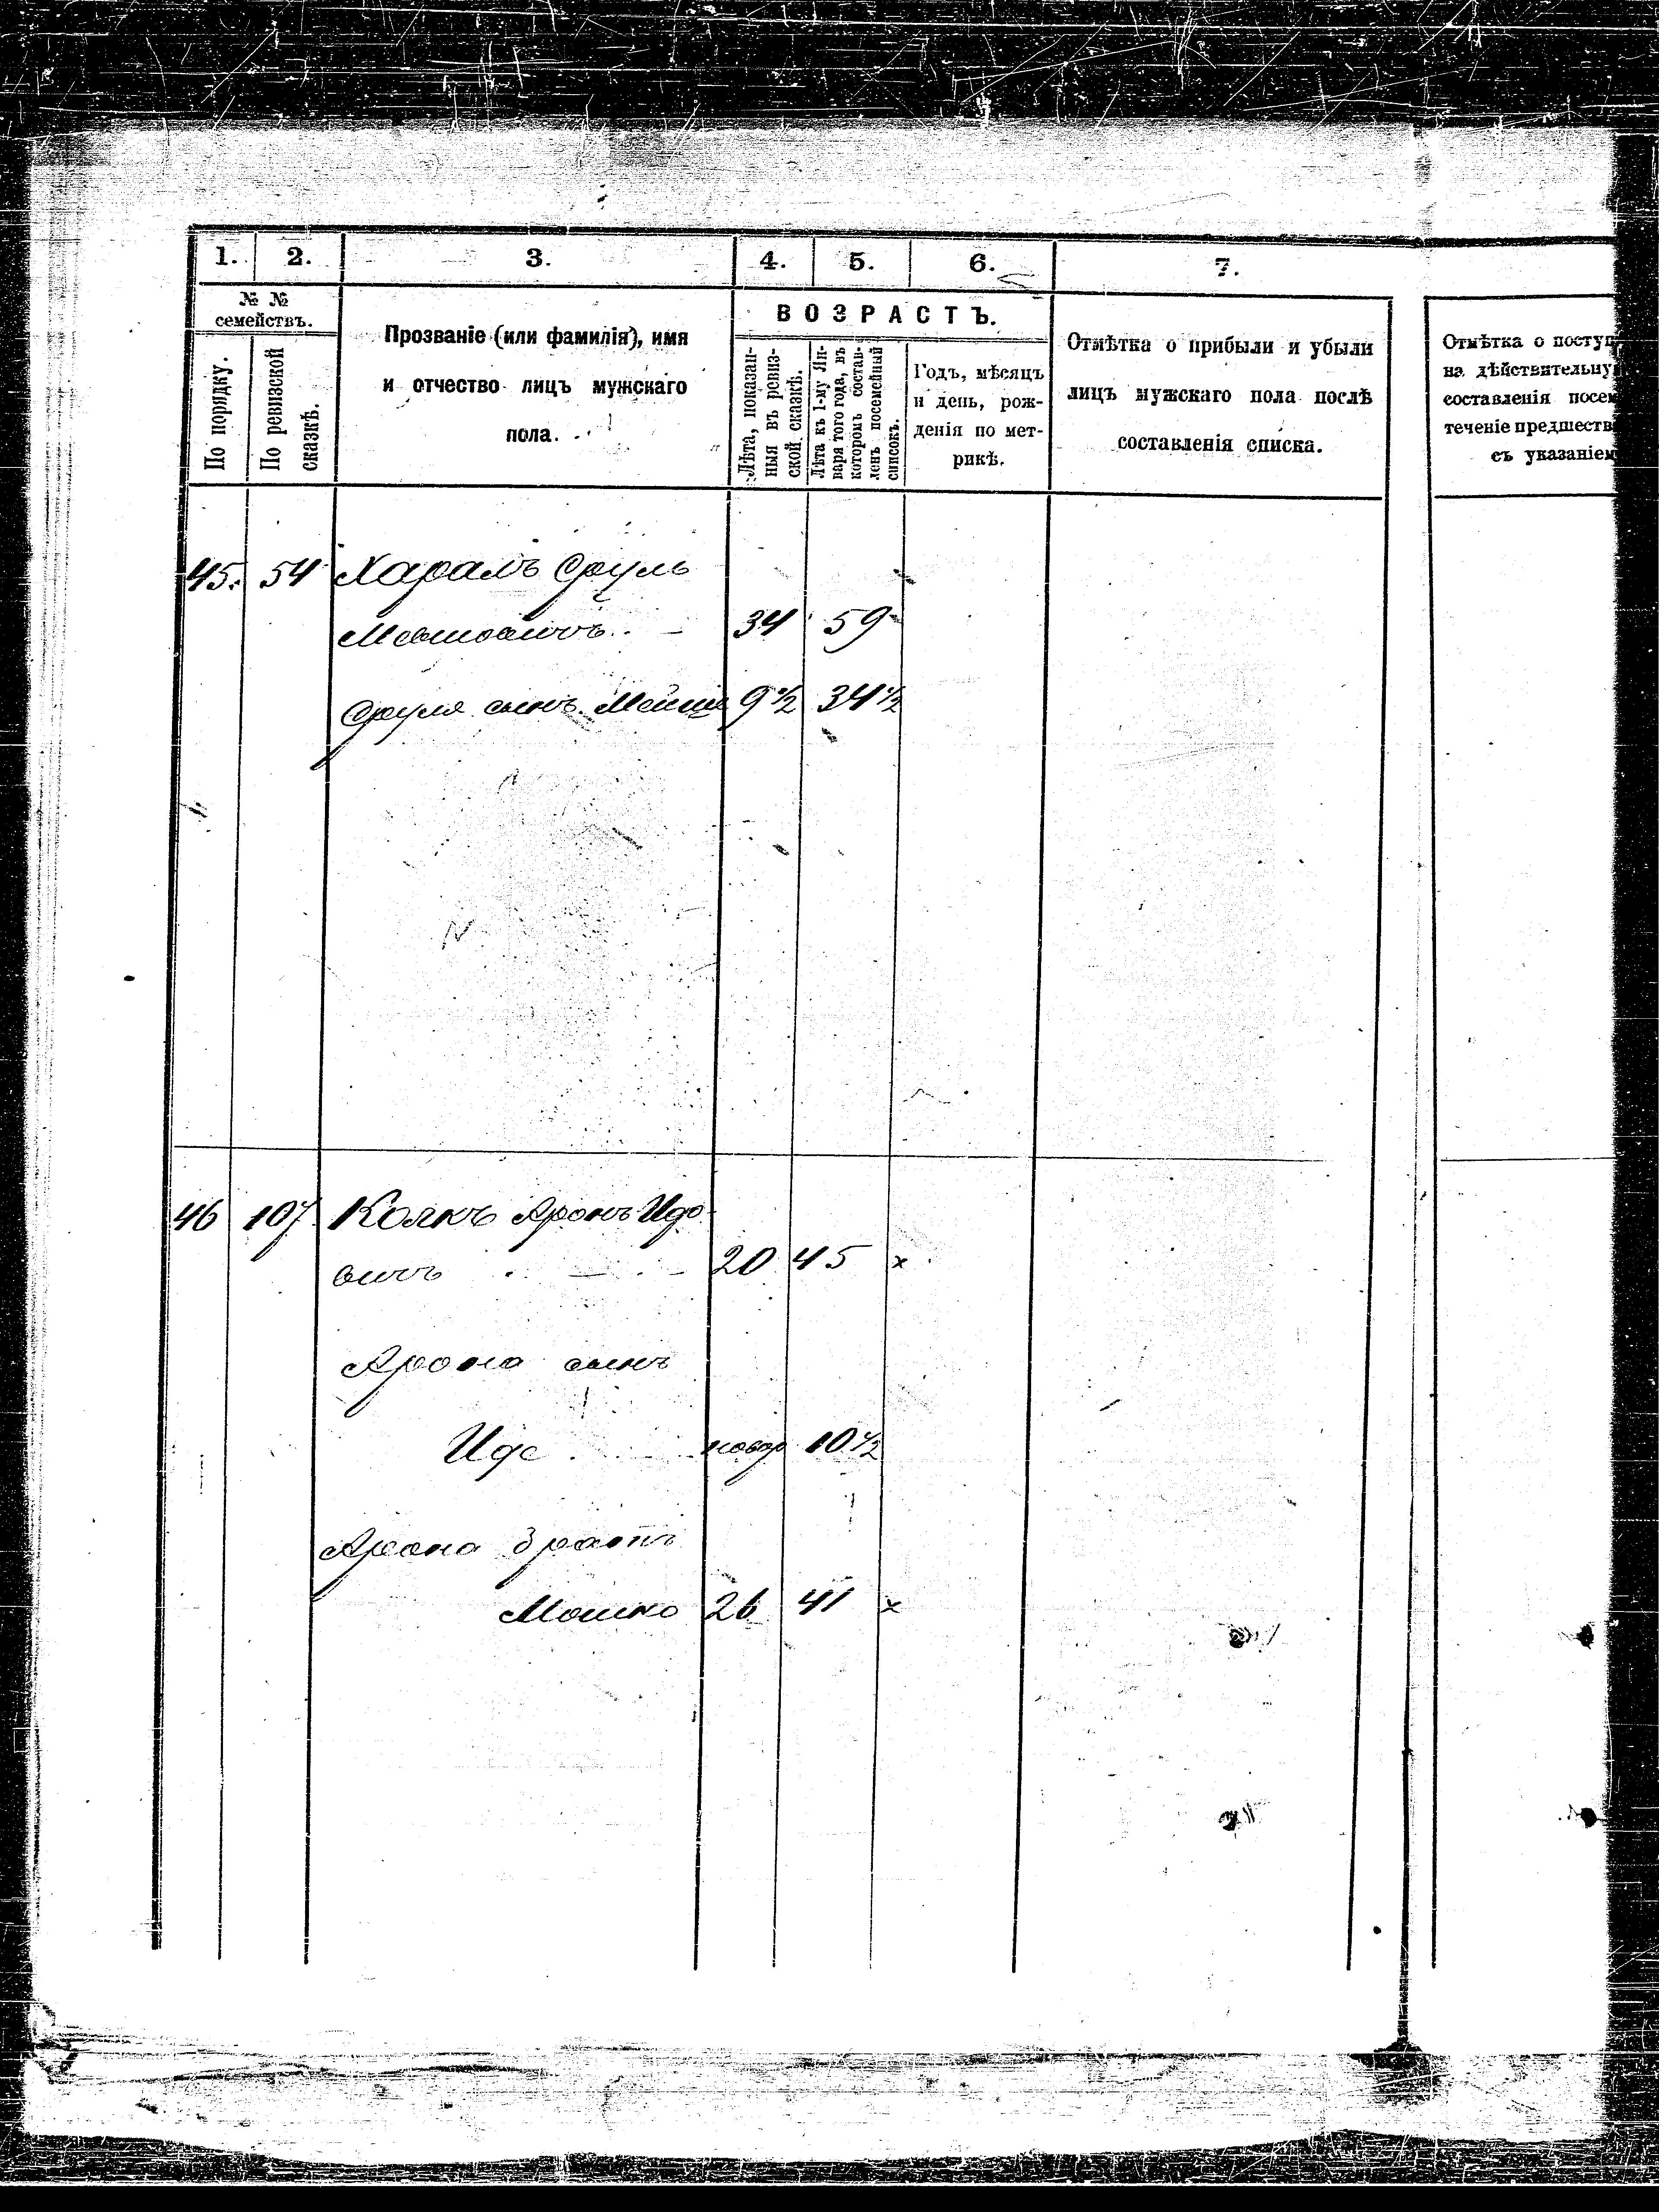 1. 2. 3. 4. 5. 6. 7.
№ №
семействъ.
По порядку.
По ревизской
сказкѣ.
Прозваніе (или фамилія), имя
и отчество лицъ мужскаго
пола.
ВОЗРАСТЪ.
Лѣта, показан-
ныя въ ревиз-
ской сказкѣ.
Лѣта къ 1-му Ян-
варя того года, въ
которомъ состав-
ленъ посемейный
списокъ.
Годъ, мѣсяцъ
и день, рож-
денія по мет-
рикѣ.
Отмѣтка о прибыли и убыли
лицъ мужскаго пола послѣ
составленія списка.
Отмѣтка о поступ
на дѣйствительну
составленія посем
теченіе предшеств
съ указаніем
45. 54 Харалъ Сруль
34 59
Сруля сынъ 9 1/2 34 1/2
46 107 Аронъ Идо
вичъ 20 45 x
Арона сынъ
Идс новор 10 1/2
Арона братъ
Мошко 26 41 x